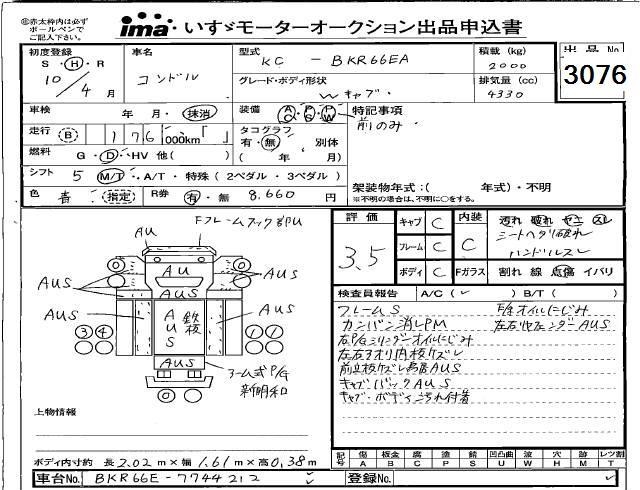 ㊟赤太枠内は必ず
ボールペンで
ご記入下さい。
ima いすゞモーターオークション出品申込書
初度登録
S・H・R
10/4月
車名
コンドル
型式
KC - BKR66EA
グレード・ボディ形状
Wキャブ
積載 (kg)
2000
排気量 (cc)
4330
出品No
3076
車検 年 月・抹消
装備 AC PS PW
特記事項
前のみ
走行 B 176 000km
タコグラフ
有・無 別体
( 年 月)
燃料 G・D・HV 他( )
シフト 5 M/T・A/T・特殊(2ペダル・3ペダル)
架装物年式:( 年式)・不明
※不明の場合は、不明に○をする。
色 青 (指定) R券 有・無 8,660 円
評価
3.5
キャブ C
フレーム C
ボディ C
内装
C
Fガラス
汚れ 破れ ヤニ スレ
シートヘタリ破れ
ハンドルスレ
割れ 線 点傷 イバリ
検査員報告 A/C( ✓ ) B/T( )
フレームS
カンバン消しPM
右P/Gシリンダーオイルにじみ
左右アオリ内板キズレ
キャブバックAUS
キャブ・ボディこうれ付着
F/Aオイルにじみ
左右リヤフェンダーAUS
AU
AU
AUS
AUS
AUS
AUS
AUS
AUS
鉄板
AUS
3 4
1 1
0
0
アーム式P/G
新明和
上物情報
ボディ内寸約 長2.02m×幅1.61m×高0.38m
記号 傷A 板金B 腐C 塗P 錆S 凹凸曲U 波W 穴H 跡M レツ割T
車台No. BKR66E-7744212
登録No.